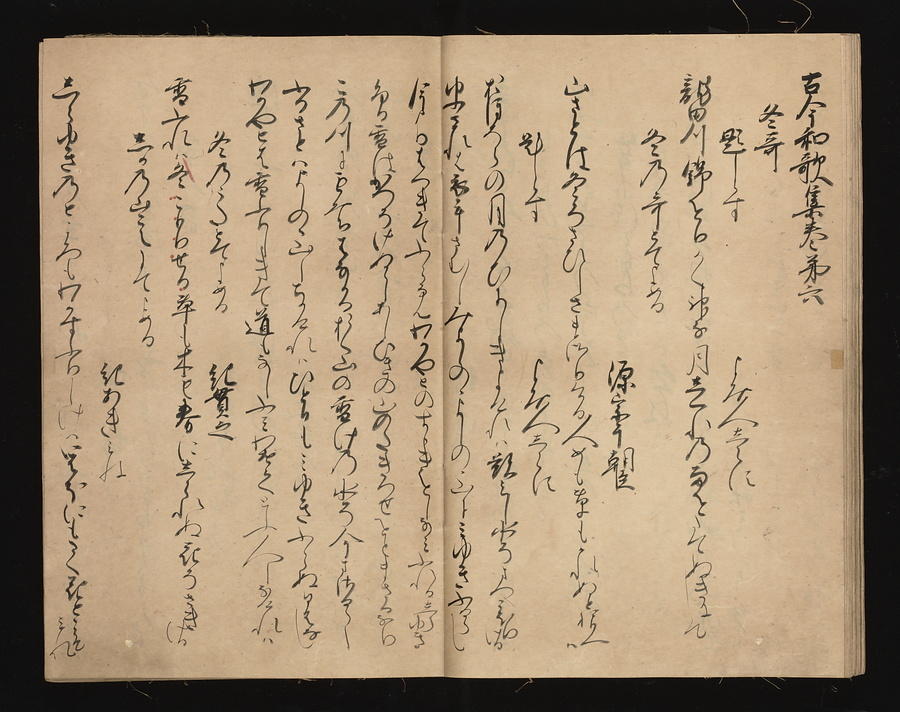 古今和歌集巻第六
冬哥
題しらす
よみ人しらす
龍田川錦をりかく神な月しくれの雨をたてぬきにして
冬乃哥とてよめる
源宗于朝臣
山さとは冬そさひしさまさりける人めも草もかれぬと思へは
題しらす
よみ人しらす
おほそらの月乃ひかりしきよけれは影みし水そまつこほりける
夕されは衣手さむしみよしのゝよしのゝ山にみゆきふるらし
今よりはつきてふらなむわかやとのすゝきをしなみふれるしら雪
ふる雪はかつそけぬらしあしひきの山のたきつせをとまさるなり
この川にもみちはなかるおく山の雪けの水そ今まさるらし
ふるさとはよしのゝ山しちかけれはひとひもみゆきふらぬ日はなし
わかやとは雪ふりしきて道もなしふみわけてとふ人しなけれは
冬乃うたとてよめる
紀貫之
雪ふれは冬こもりせる草も木も春にしられぬ花そさきける
しかの山こえにてよめる
紀あきみね
しらゆきのところもわかすふりしけはいはほにもさく花とこそみれ